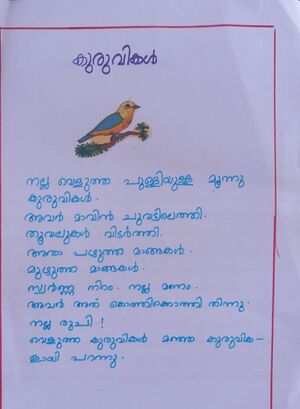 കുരുവികൾ
നല്ല വെളുത്ത പുള്ളിയുള്ള മൂന്നു
കുരുവികൾ.
അവർ മാവിൻ ചുവട്ടിലെത്തി.
തൂവലുകൾ വിടർത്തി.
അതാ പഴുത്ത മാങ്ങകൾ.
മുഴുത്ത മാങ്ങകൾ.
സ്വർണ്ണ നിറം. നല്ല മണം.
അവർ അത് കൊത്തിക്കൊത്തി തിന്നു.
നല്ല രുചി !
വെളുത്ത കുരുവികൾ മഞ്ഞ കുരുവിക-
ളായി പറന്നു.